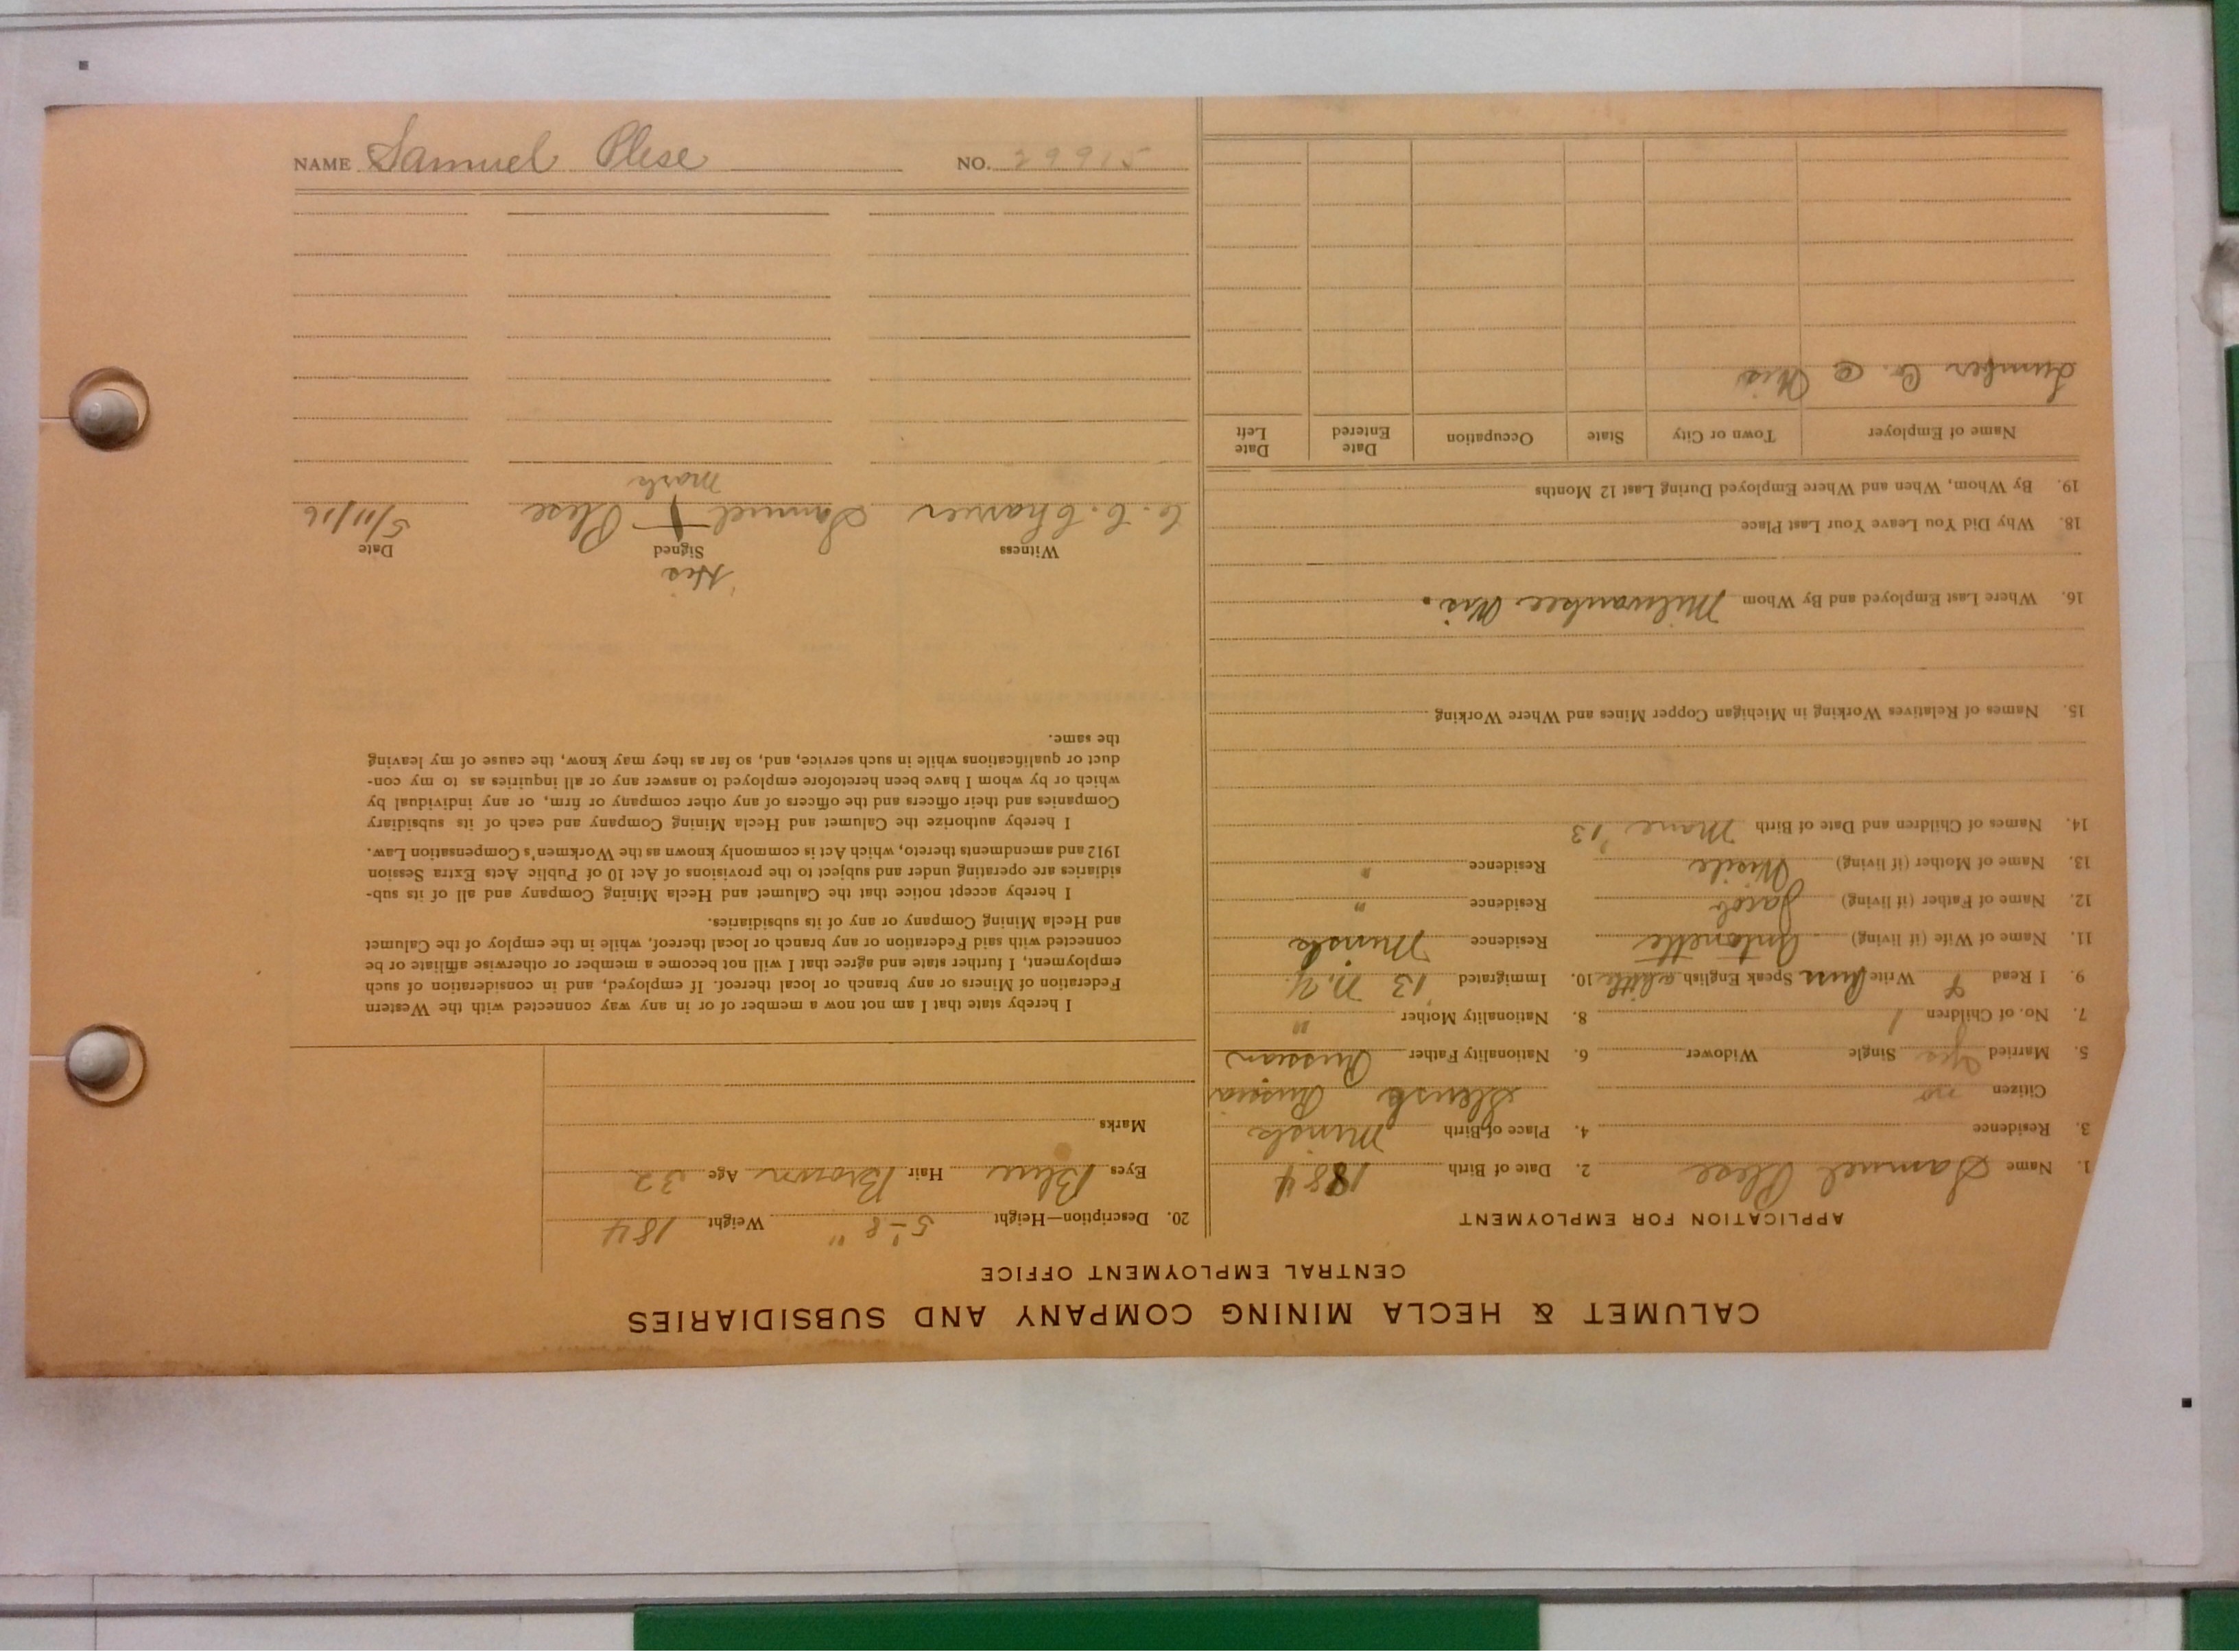 CALUMET & HECLA MINING COMPANY AND SUBSIDIARIES
CENTRAL EMPLOYMENT OFFICE
APPLICATION FOR EMPLOYMENT
1. Name Samuel Plese 2. Date of Birth 1884
3. Residence 4. Place of Birth Minsk
Citizen no Russia
5. Married yes Single Widower 6. Nationality Father Russian
7. No. of Children 1 8. Nationality Mother "
9. I Read & Write Russ Speak English a little 10. Immigrated '13 N.Y.
11. Name of Wife (if living) Antonette Residence Minsk
12. Name of Father (if living) Jacob Residence "
13. Name of Mother (if living) Residence "
14. Names of Children and Date of Birth '13
15. Names of Relatives Working in Michigan Copper Mines and Where Working
16. Where Last Employed and By Whom Milwaukee Wis.
18. Why Did You Leave Your Last Place
19. By Whom, When and Where Employed During Last 12 Months
Name of Employer Town or City State Occupation Date Entered Date Left
Lumber Co. @ Wis
20. Description—Height 5'-8" Weight 184
Eyes Blue Hair Brown Age 32
Marks
I hereby state that I am not now a member of or in any way connected with the Western
Federation of Miners or any branch or local thereof. If employed, and in consideration of such
employment, I further state and agree that I will not become a member or otherwise affiliate or be
connected with said Federation or any branch or local thereof, while in the employ of the Calumet
and Hecla Mining Company or any of its subsidiaries.
I hereby accept notice that the Calumet and Hecla Mining Company and all of its sub-
sidiaries are operating under and subject to the provisions of Act 10 of Public Acts Extra Session
1912 and amendments thereto, which Act is commonly known as the Workmen's Compensation Law.
I hereby authorize the Calumet and Hecla Mining Company and each of its subsidiary
Companies and their officers and the officers of any other company or firm, or any individual by
which or by whom I have been heretofore employed to answer any or all inquiries as to my con-
duct or qualifications while in such service, and, so far as they may know, the cause of my leaving
the same.
His
Witness Signed Date
C. C. Samuel Plese 5/11/16
mark
NAME Samuel Plese NO. 29915